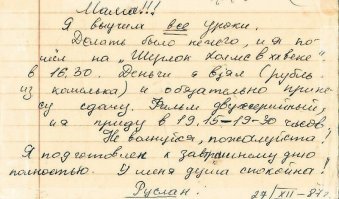 Мама!!!
Я выучил все уроки.
Делать было нечего, и я по-
шёл на "Шерлок Холмс в XX веке".
в 16.30. Деньги я взял (рубль
из кошелька) и обязательно прине-
су сдачу. Фильм двухсерийный,
и я приду в 19.15-19-30 часов
Не волнуйся, пожалуйста!
Я подготовлен к завтрашнему дню
полностью. У меня душа спокойна!
Руслан.
27/XII-87г.